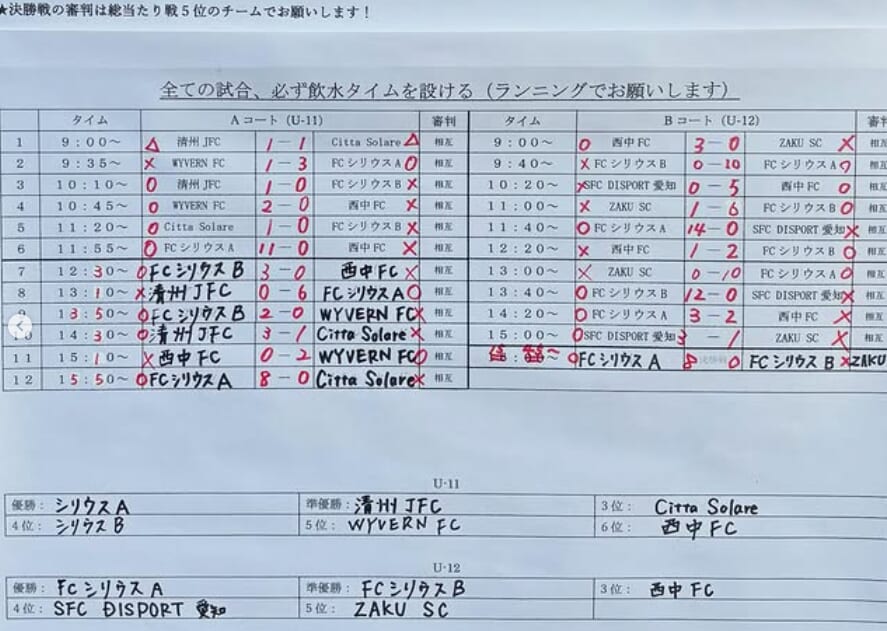 ★決勝戦の審判は総当たり戦5位のチームでお願いします！
全ての試合、必ず飲水タイムを設ける（ランニングでお願いします）
タイム Aコート（U-11） 審判 タイム Bコート（U-12） 審判
1 9：00～ △ 清州JFC 1－1 Citta Solare △ 相互 9：00～ ○ 西中FC 3－0 ZAKU SC × 相互
2 9：35～ × WYVERN FC 1－3 FCシリウスA ○ 相互 9：40～ × FCシリウスB 0－10 FCシリウスA ○ 相互
3 10：10～ ○ 清州JFC 1－0 FCシリウスB × 相互 10：20～ × SFC DISPORT愛知 0－5 西中FC ○ 相互
4 10：45～ ○ WYVERN FC 2－0 西中FC × 相互 11：00～ × ZAKU SC 1－6 FCシリウスB ○ 相互
5 11：20～ ○ Citta Solare 1－0 FCシリウスB × 相互 11：40～ ○ FCシリウスA 14－0 SFC DISPORT愛知 × 相互
6 11：55～ ○ FCシリウスA 11－0 西中FC × 相互 12：20～ × 西中FC 1－2 FCシリウスB ○ 相互
7 12：30～ ○ FCシリウスB 3－0 西中FC × 相互 13：00～ × ZAKU SC 0－10 FCシリウスA ○ 相互
8 13：10～ × 清州JFC 0－6 FCシリウスA ○ 相互 13：40～ ○ FCシリウスB 12－0 SFC DISPORT愛知 × 相互
13：50～ ○ FCシリウスB 2－0 WYVERN FC × 相互 14：20～ ○ FCシリウスA 3－2 西中FC × 相互
14：30～ ○ 清州JFC 3－1 Citta Solare × 相互 15：00～ ○ SFC DISPORT愛知 3－1 ZAKU SC × 相互
11 15：10～ × 西中FC 0－2 WYVERN FC ○ 相互 ○ FCシリウスA 8 決勝戦 0 FCシリウスB × ZAKU
12 15：50～ ○ FCシリウスA 8－0 Citta Solare × 相互
U-11
優勝：シリウスA 準優勝：清州JFC 3位：Citta Solare
4位：シリウスB 5位：WYVERN FC 6位：西中FC
U-12
優勝：FCシリウスA 準優勝：FCシリウスB 3位：西中FC
4位：SFC DISPORT 愛知 5位：ZAKU SC